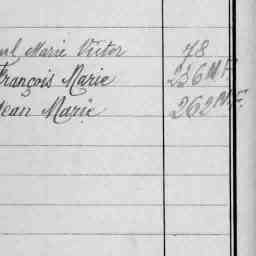 Marie Victor 78
François Marie 236 M.F.
Jean Marie 262 M.F.